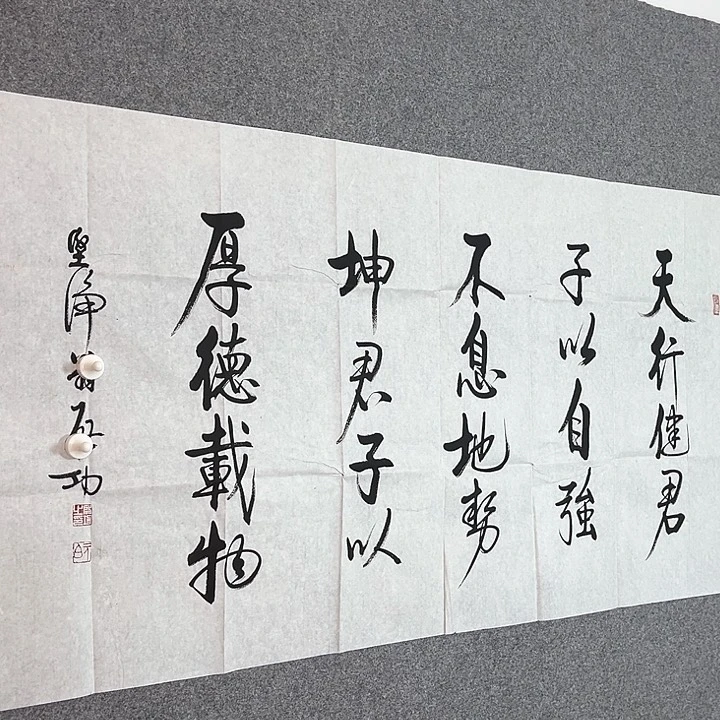 天行健君
子以自強
不息地勢
坤君子以
厚德載物
堅淨翁啟功